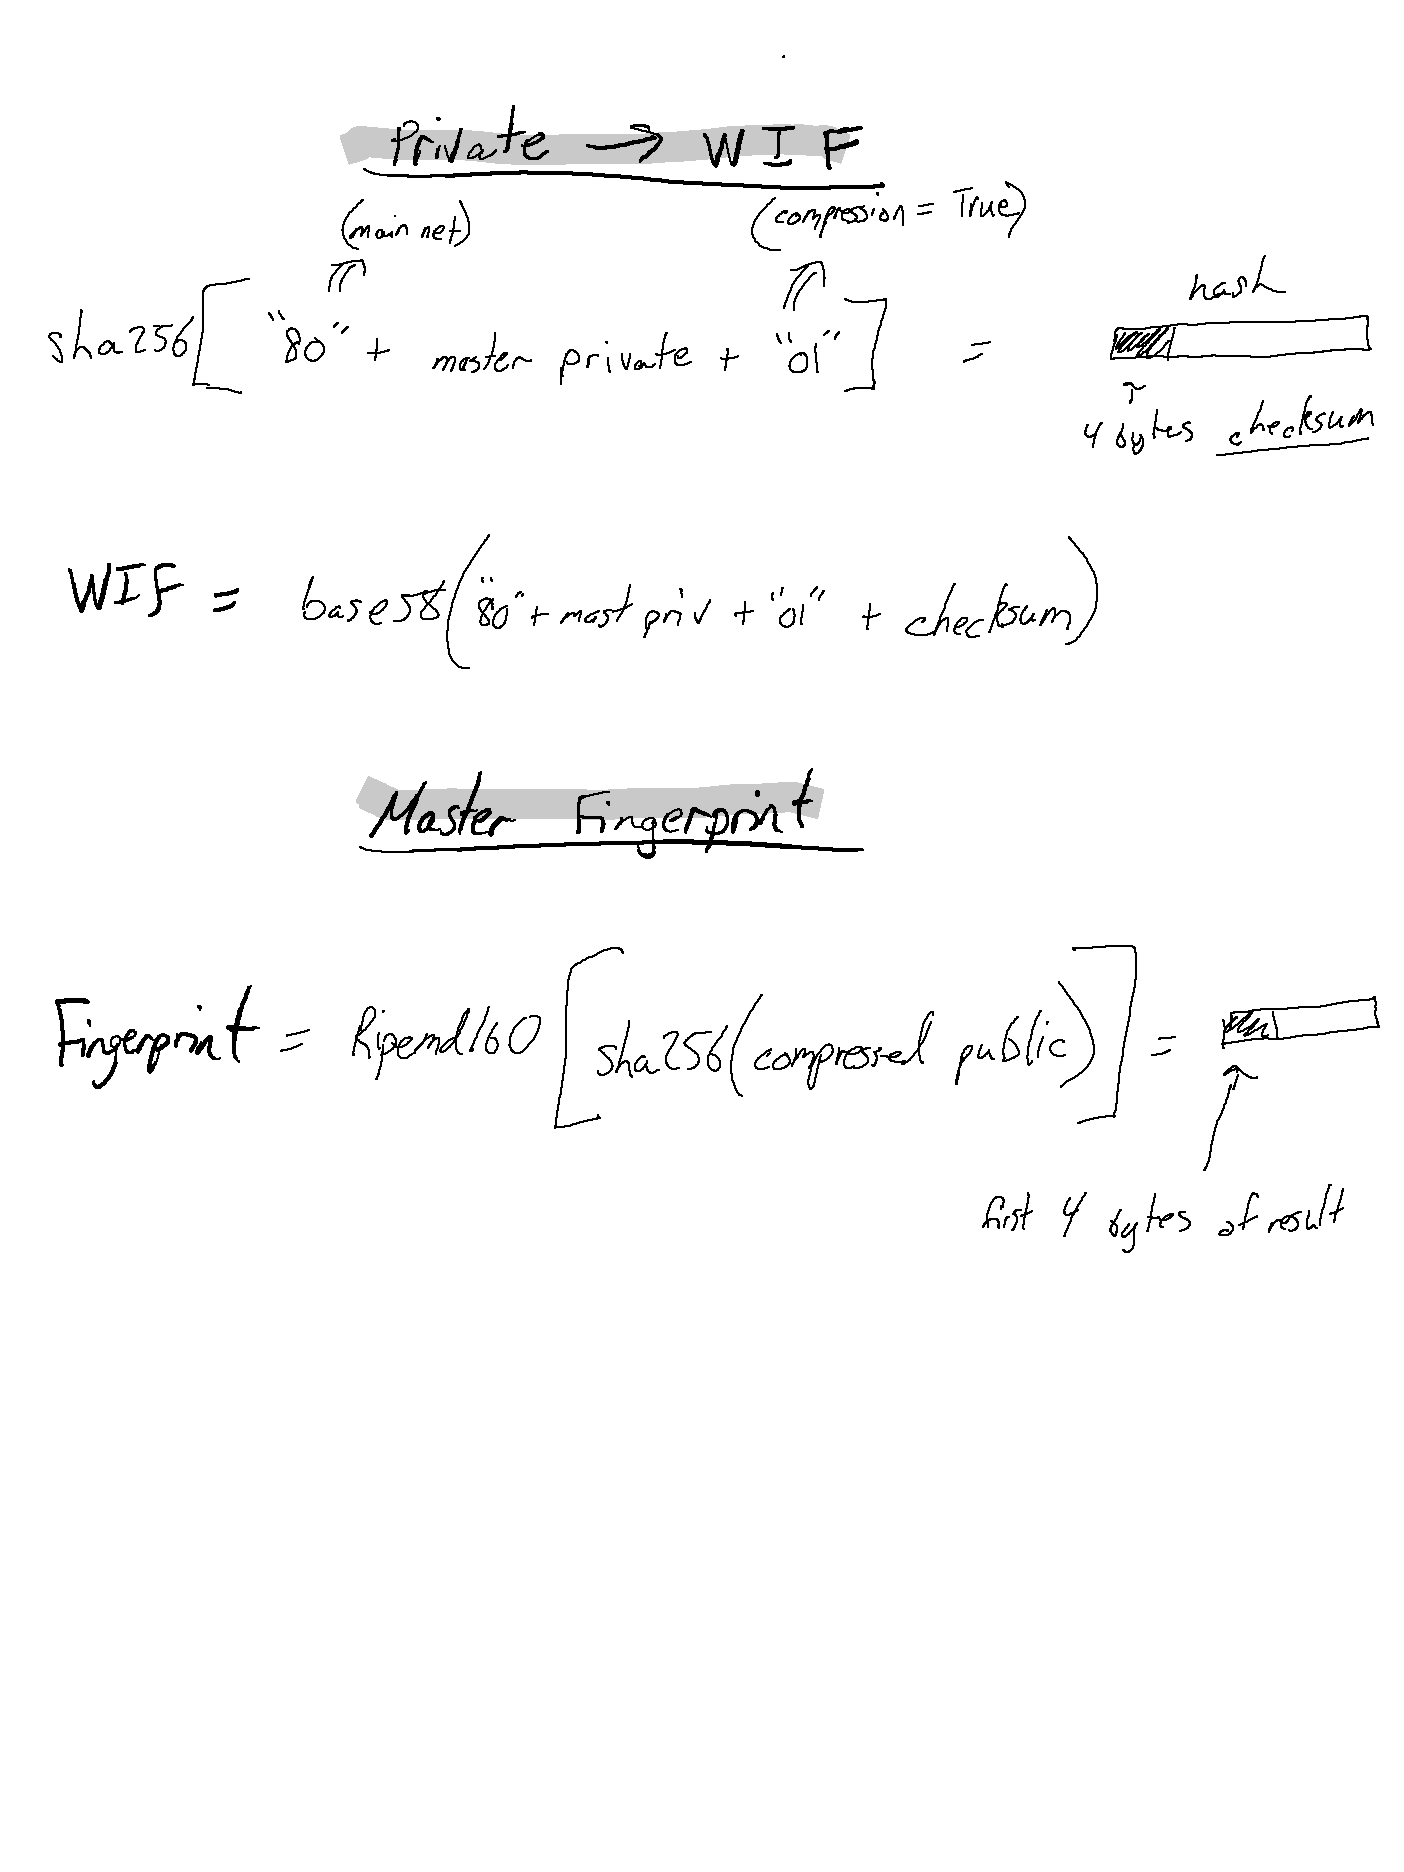 Private → WIF
(main net) (compression = True)
hash
sha256[ "80" + master private + "01" ] =
4 bytes checksum
WIF = base58("80" + mast priv + "01" + checksum)
Master Fingerprint
Fingerprint = Ripemd160[sha256(compressed public)] =
first 4 bytes of result